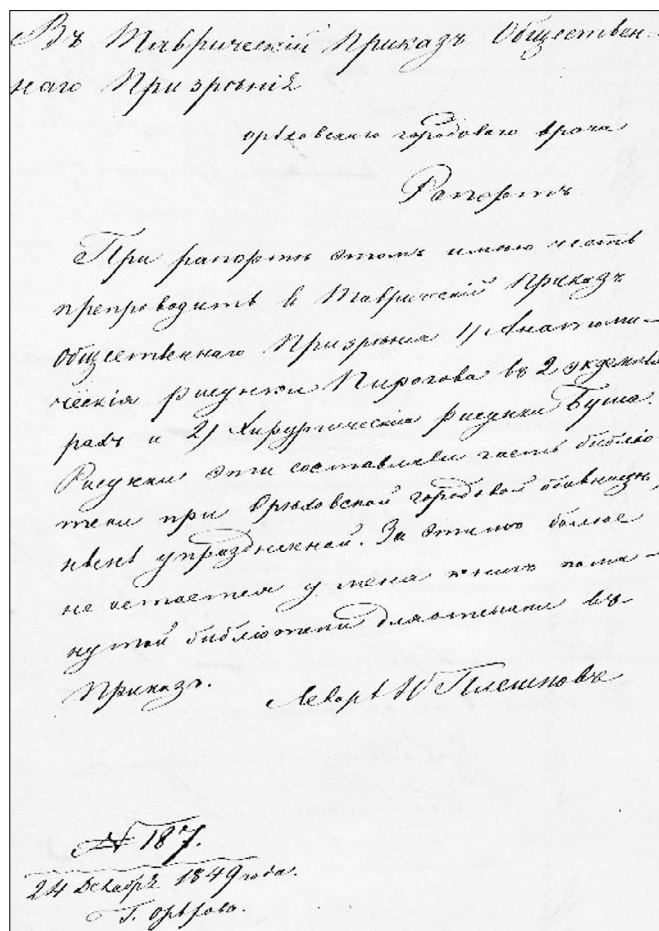 Въ Таврическій Приказъ Обществен-
наго Призрѣнія
орѣховскаго городоваго врача
Рапортъ
При рапортѣ этомъ имею честь
препроводить в Таврическій Приказъ
Общественнаго Призрѣнія 1) Анатоми-
ческія рисунки Пирогова въ 2 экземпля
рахъ и 2) Хирургическія рисунки Буша.
Рисунки эти составляли часть библіо
теки при Орѣховской городовой больницѣ,
нынѣ упраздненной. За этимъ болѣе
не остается у меня книгъ помя-
нутой библіотеки для отсылки въ
Приказъ.
Лекарь Плешковъ
N 187.
24 Декабрѣ 1849 года.
Г. Орѣхово.